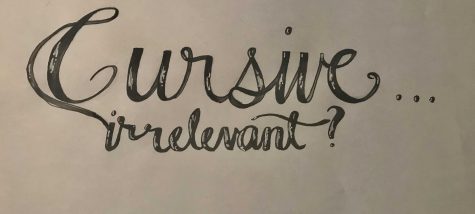 Cursive...
irrelevant?